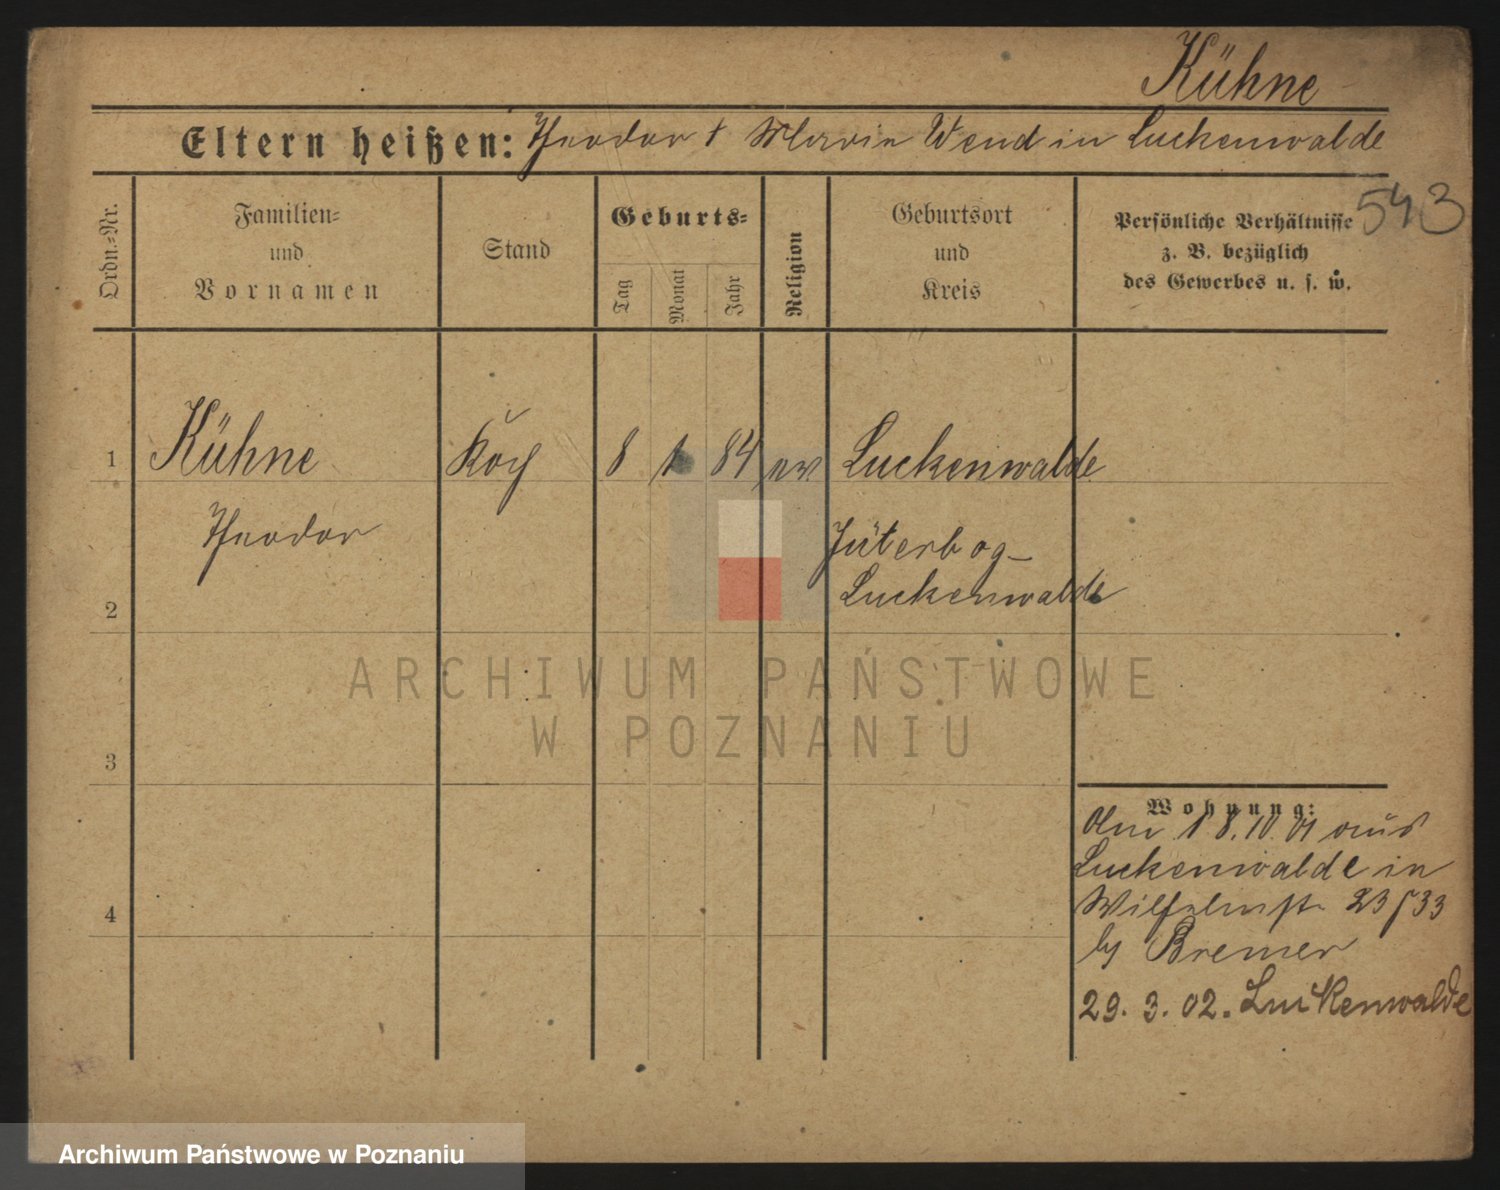 Kühne
Eltern heißen: Theodor † Marie Wend in Luckenwalde
543
Ordn.=Nr.
Familien=
und
Vornamen
Stand
Geburts=
Tag
Monat
Jahr
Religion
Geburtsort
und
Kreis
Persönliche Verhältnisse
z. B. bezüglich
des Gewerbes u. s. w.
1
Kühne
Koch
8
1
84
ev
Luckenwalde
Theodor
Jüterbog-
Luckenwalde
2
3
4
Wohnung:
Am 18.10.01 aus
Luckenwalde in
Wilhelmstr 23
bei Bremer
29. 3. 02. Luckenwalde
ARCHIWUM PAŃSTWOWE
W POZNANIU
Archiwum Państwowe w Poznaniu